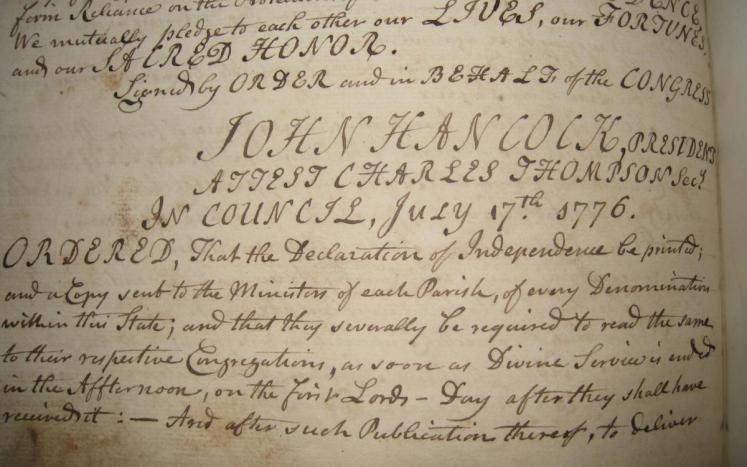 firm Reliance on the
We mutually pledge to each other our LIVES, our FORTUNES.
and our SACRED HONOR.
Signed by ORDER and in BEHALF of the CONGRESS
JOHN HANCOCK, PRESIDENT
ATTEST CHARLES THOMPSON Secy
IN COUNCIL, JULY 17th. 1776.
ORDERED, That the Declaration of Independence be printed;
and a Copy sent to the Ministers of each Parish, of every Denomination
within this State; and that they severally be required to read the same
to their respective Congregations, as soon as Divine Service is ended
in the Affternoon, on the first Lords - Day after they shall have
received it : — And after such Publication thereof, to deliver